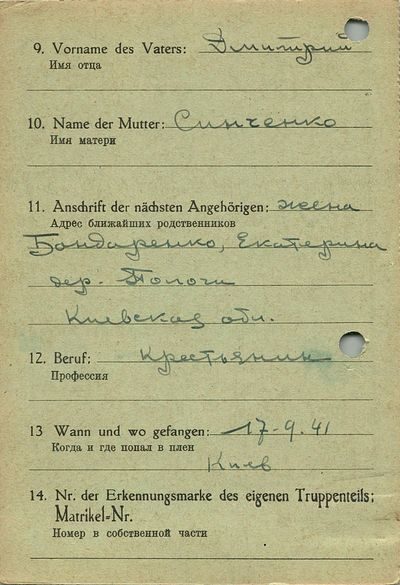 9. Vorname des Vaters: Дмитрий
Имя отца
10. Name der Mutter: Синченко
Имя матери
11. Anschrift der nächsten Angehörigen: жена
Адрес ближайших родственников
Бондаренко, Екатерина
дер. Пологи
Киевская обл.
12. Beruf: Крестьянин
Профессия
13 Wann und wo gefangen: 17-9.41
Когда и где попал в плен
Киев
14. Nr. der Erkennungsmarke des eigenen Truppenteils:
Matrikel-Nr.
Номер в собственной части